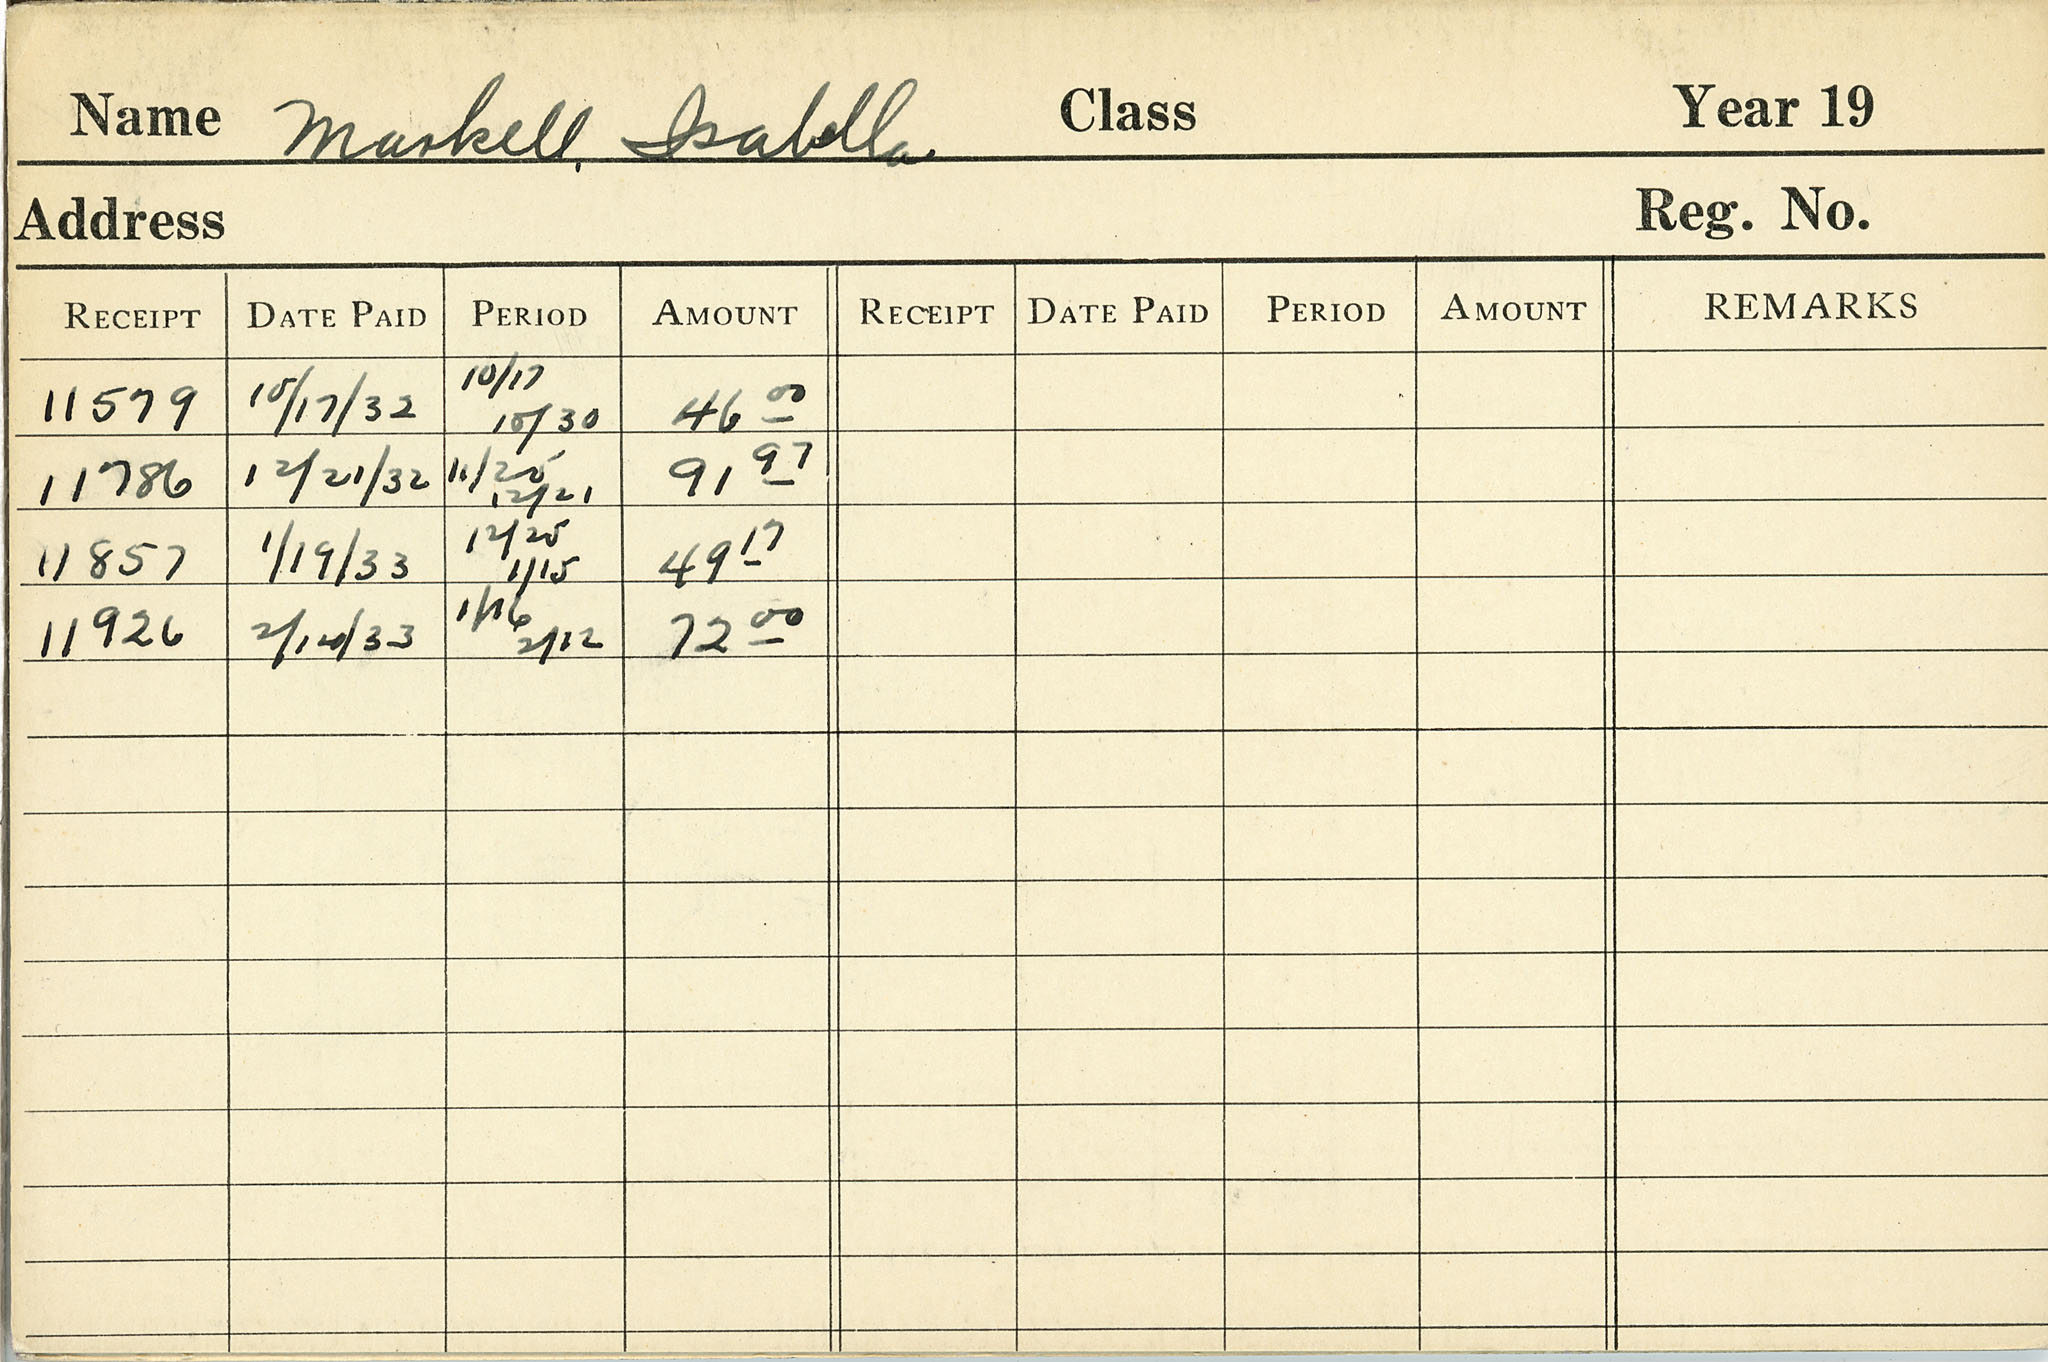 Name Markell, Isabella. Class Year 19
Address Reg. No.
RECEIPT DATE PAID PERIOD AMOUNT RECEIPT DATE PAID PERIOD AMOUNT REMARKS
11579 10/17/32 10/17 10/30 46 00
11786 12/21/32 11/25 12/21 91 97
11857 1/19/33 12/25 1/15 49 17
11926 1/16 2/12 72 00